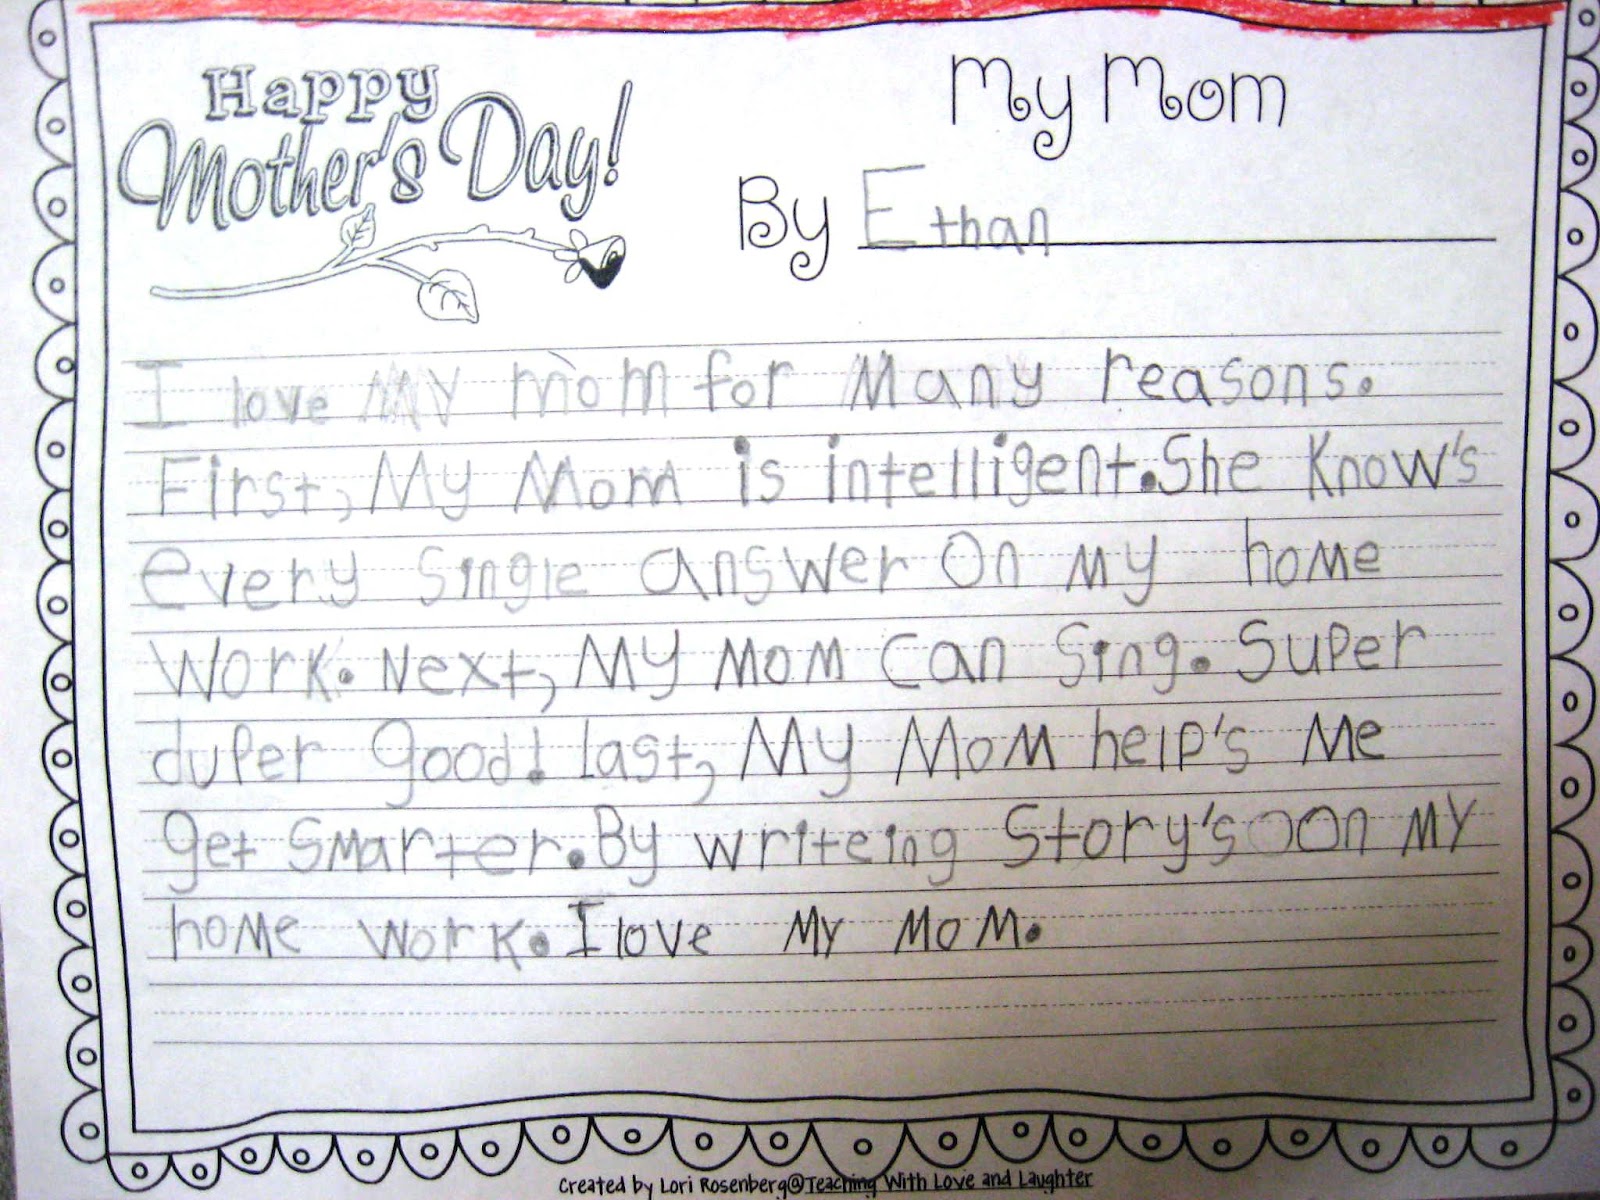 Happy
Mother's Day!
My Mom
By Ethan
I love My mom for Many reasons.
First, My Mom is intelligent. She Know's
every single answer On my home
Work. Next, My Mom Can Sing. Super
duper good! last, My Mom help's Me
get Smarter. By writeing Story's On My
home work. I love My Mom.
Created by Lori Rosenberg@Teaching With Love and Laughter